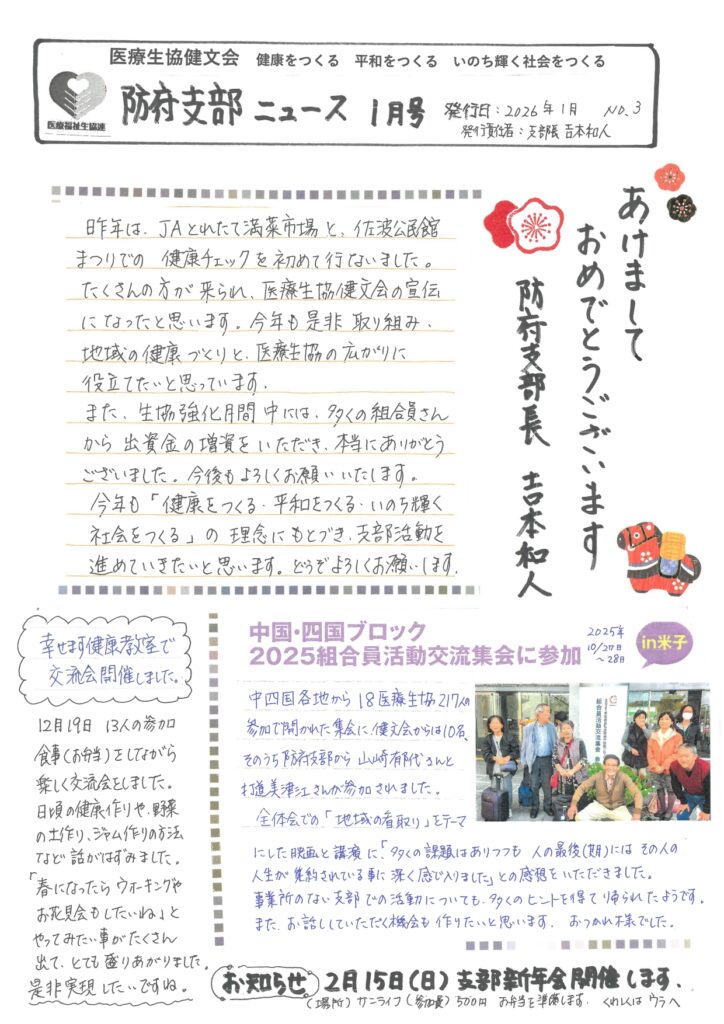 医療生協健文会 健康をつくる 平和をつくる いのち輝く社会をつくる
医療福祉生協連
防府支部ニュース 1月号
発行日:2026年1月 No.3
発行責任者:支部長 吉本和人
あけまして
おめでとうございます
防府支部長 吉本和人
昨年は、JAとれたて満菜市場と、佐波公民館
まつりでの 健康チェックを初めて行ないました。
たくさんの方が来られ、医療生協健文会の宣伝
になったと思います。今年も是非 取り組み、
地域の健康づくりと、医療生協の広がりに
役立てたいと思っています。
また、生協強化月間中には、多くの組合員さん
から 出資金の増資をいただき、本当にありがとう
ございました。今後もよろしくお願いいたします。
今年も「健康をつくる・平和をつくる・いのち輝く
社会をつくる」の 理念にもとづき、支部活動を
進めていきたいと思います。どうぞよろしくお願いします。
幸せます健康教室で
交流会開催しました。
12月19日 13人の参加
食事(お弁当)をしながら
楽しく交流会をしました。
日頃の健康作りや、野菜
の土作り、ジャム作りの方法
など 話がはずみました。
「春になったら ウォーキングや
お花見会もしたいね」と
やってみたい事がたくさん
出て、とても盛りあがりました。
是非実現したいですね。
中国・四国ブロック
2025組合員活動交流集会に参加
2025年
10/27日
~28日
in米子
中四国各地から 18医療生協 217人の
参加で開かれた集会に、健文会からは10名、
そのうち防府支部から 山崎有代さんと
打道美津江さんが参加されました。
全体会での「地域の看取り」をテーマ
にした映画と講演に、「多くの課題はありつつも 人の最後(期)には その人の
人生が集約されている事に 深く感じ入りました」との感想をいただきました。
事業所のない支部での活動についても、多くのヒントを得て帰られたようです。
また、お話ししていただく機会も作りたいと思います。 おつかれ様でした。
組合員活動交流集会
お知らせ 2月15日(日) 支部新年会開催します。
(場所) サンライフ (参加費) 500円 お弁当を準備します。 くわしくは ウラへ